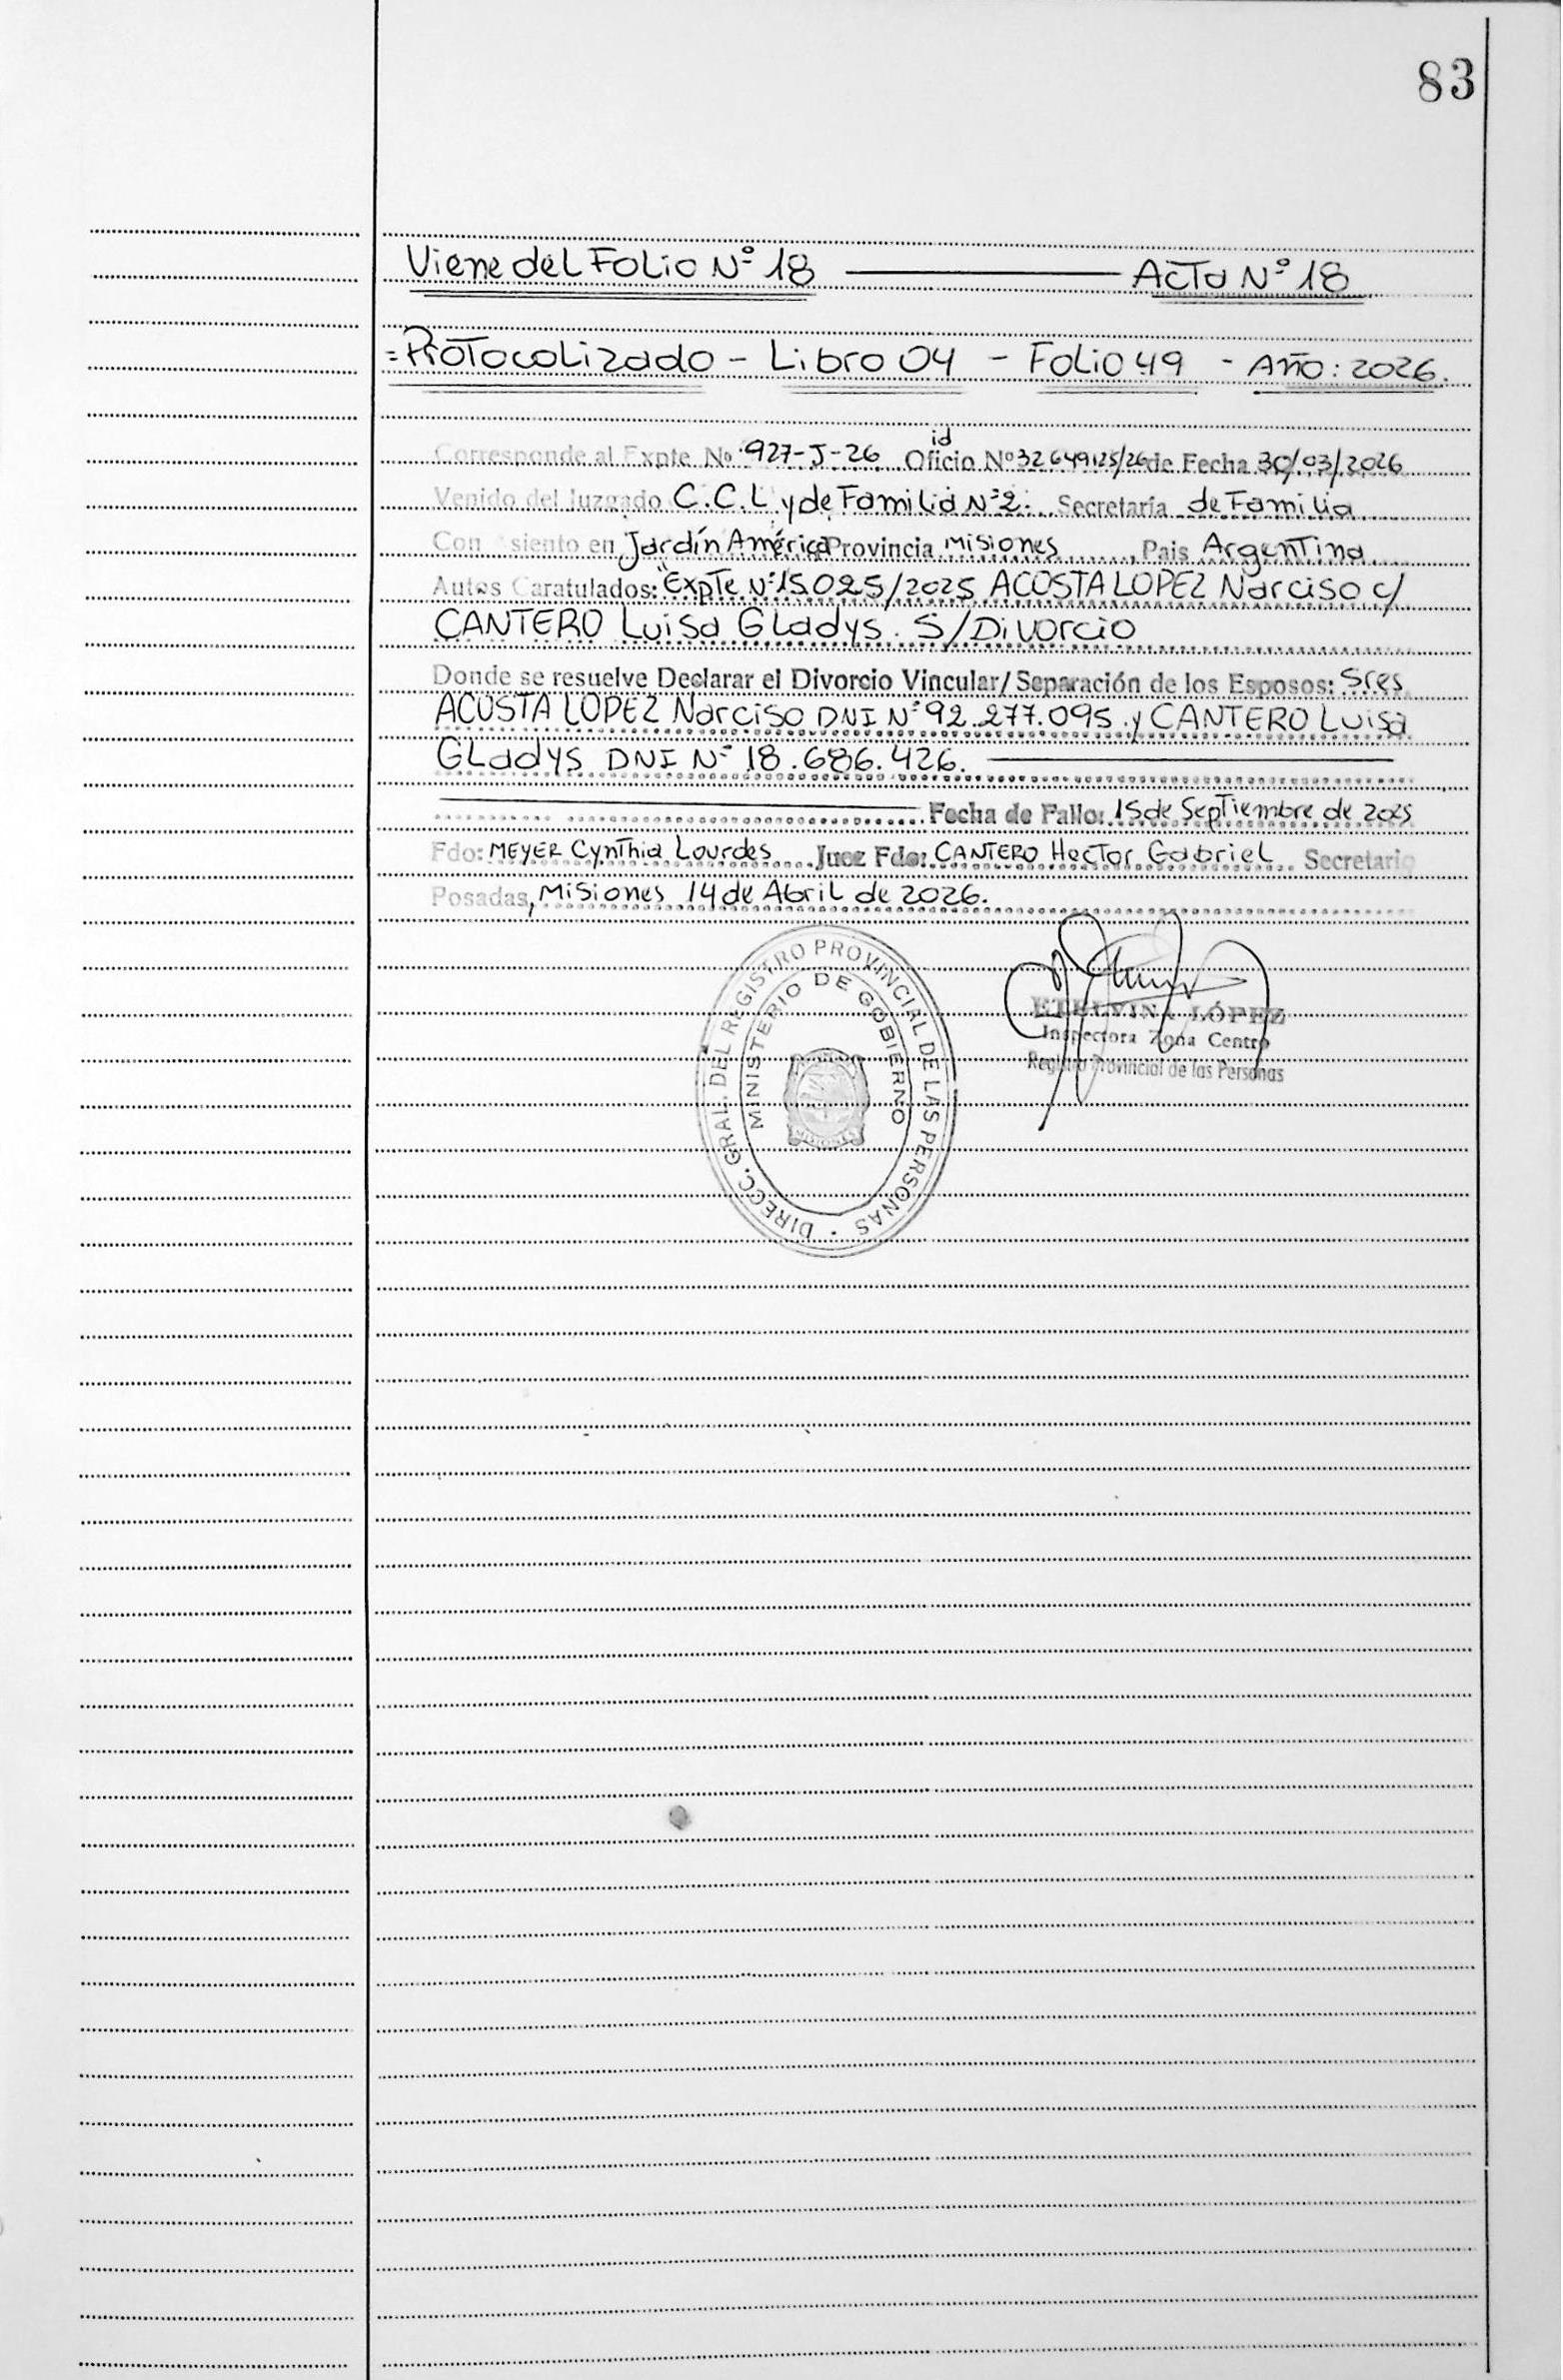 83
Viene del Folio Nº 18 ——— Acta Nº 18
=Protocolizado - Libro 04 - Folio 49 - Año: 2026.
id
Corresponde al Expte No 927-J-26 Oficio Nº 32649125/26 de Fecha 30/03/2026
Venido del Juzgado C.C.L y de Familia Nº 2. Secretaría de Familia
Con siento en Jardín América Provincia Misiones, Pais Argentina
Autos Caratulados: "Expte Nº 15025/2025 ACOSTA LOPEZ Narciso c/
CANTERO Luisa Gladys. S/Divorcio
Donde se resuelve Declarar el Divorcio Vincular/Separación de los Esposos: Sres
ACOSTA LOPEZ Narciso DNI Nº 92.277.095 y CANTERO Luisa
Gladys DNI Nº 18.686.426. ———
——— Fecha de Fallo: 15 de Septiembre de 2025
Fdo: MEYER Cynthia Lourdes Juez Fdo: CANTERO Hector Gabriel Secretario
Posadas, Misiones 14 de Abril de 2026.
DIRECC. GRAL. DEL REGISTRO PROVINCIAL DE LAS PERSONAS
MINISTERIO DE GOBIERNO
MISIONES
ETELVINA LÓPEZ
Inspectora Zona Centro
Registro Provincial de las Personas